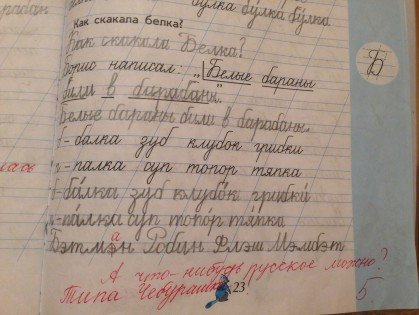 булка булка бу́лка
Как скакала белка?
Как скакала Белка?
Борис написал: „Белые бараны
били в барабаны".
Белые бараны били в барабаны.
б - балка зуб клубок грибки
п - палка суп топор тяпка
б - ба́лка зуб клубо́к грибки́
п - па́лка суп топо́р тя́пка
Бэтмэн Робин Флэш Мэмбэт
а
А что-нибудь русское можно?
Типа Чебурашки
23
5
Б